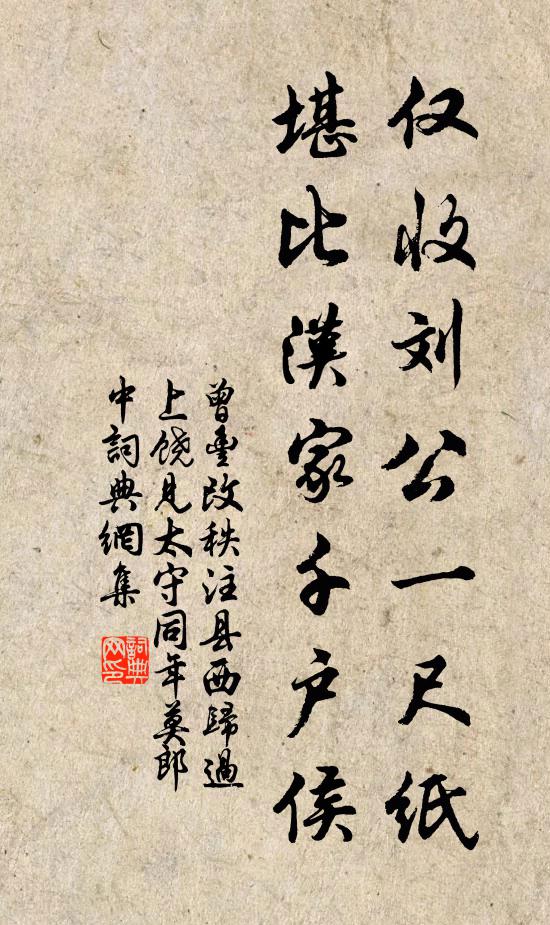 仅收刘公一尺纸
堪比漢家千户侯
曾豊改秩注县西歸過
上饶見太守同年莫郎
中詞典網集
詞典网印